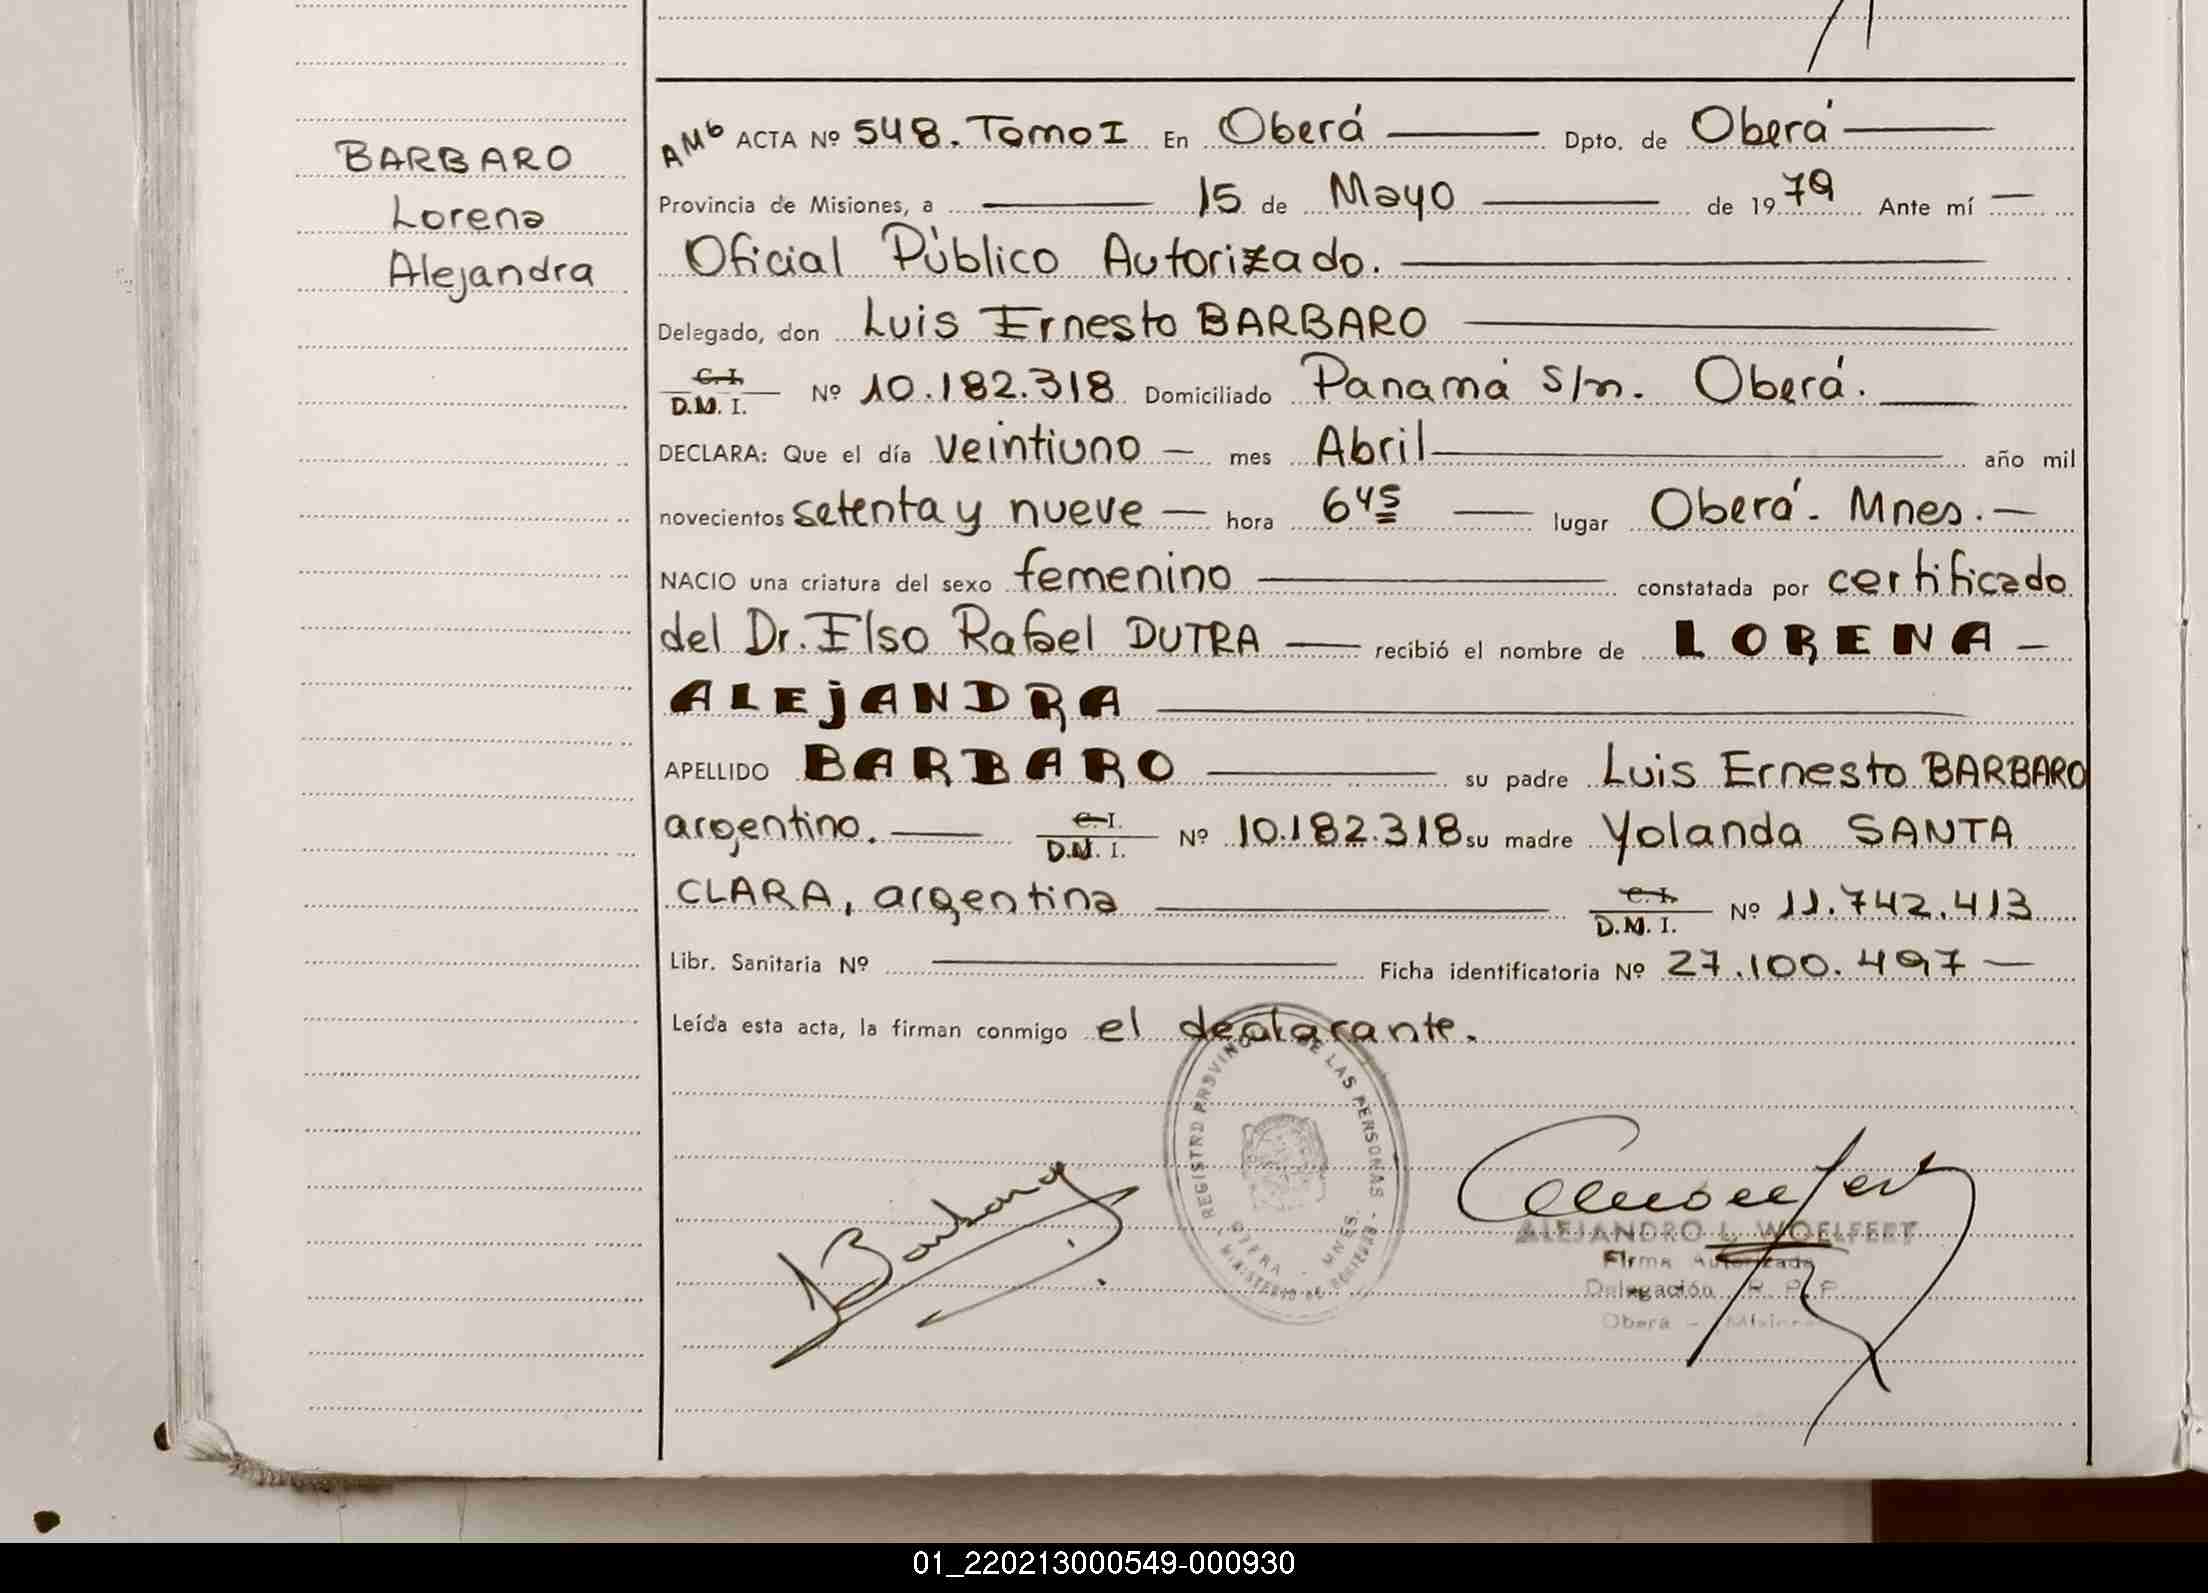 BARBARO
Lorena
Alejandra
AMb ACTA Nº 548. Tomo I En Oberá Dpto. de Oberá
Provincia de Misiones, a 15 de Mayo de 1979 Ante mí
Oficial Público Autorizado.
Delegado, don Luis Ernesto BARBARO
C. I. / D.N.I. Nº 10.182.318 Domiciliado Panamá s/n. Oberá.
DECLARA: Que el día veintiuno mes Abril año mil
novecientos setenta y nueve hora 6 45 lugar Oberá. Mnes.
NACIO una criatura del sexo femenino constatada por certificado
del Dr. Elso Rafael DUTRA recibió el nombre de LORENA
ALEJANDRA
APELLIDO BARBARO su padre Luis Ernesto BARBARO
argentino. C. I. / D.N.I. Nº 10.182.318 su madre Yolanda SANTA
CLARA, argentina C. I. / D.N.I. Nº 11.742.413
Libr. Sanitaria Nº Ficha identificatoria Nº 27.100.497
Leída esta acta, la firman conmigo el declarante.
REGISTRO PROVINC DE LAS PERSONAS
OBERA - MNES.
ALEJANDRO L. WOELFERT
Firma Autorizada
Delegación R. P. P.
Oberá - Misiones
01_220213000549-000930